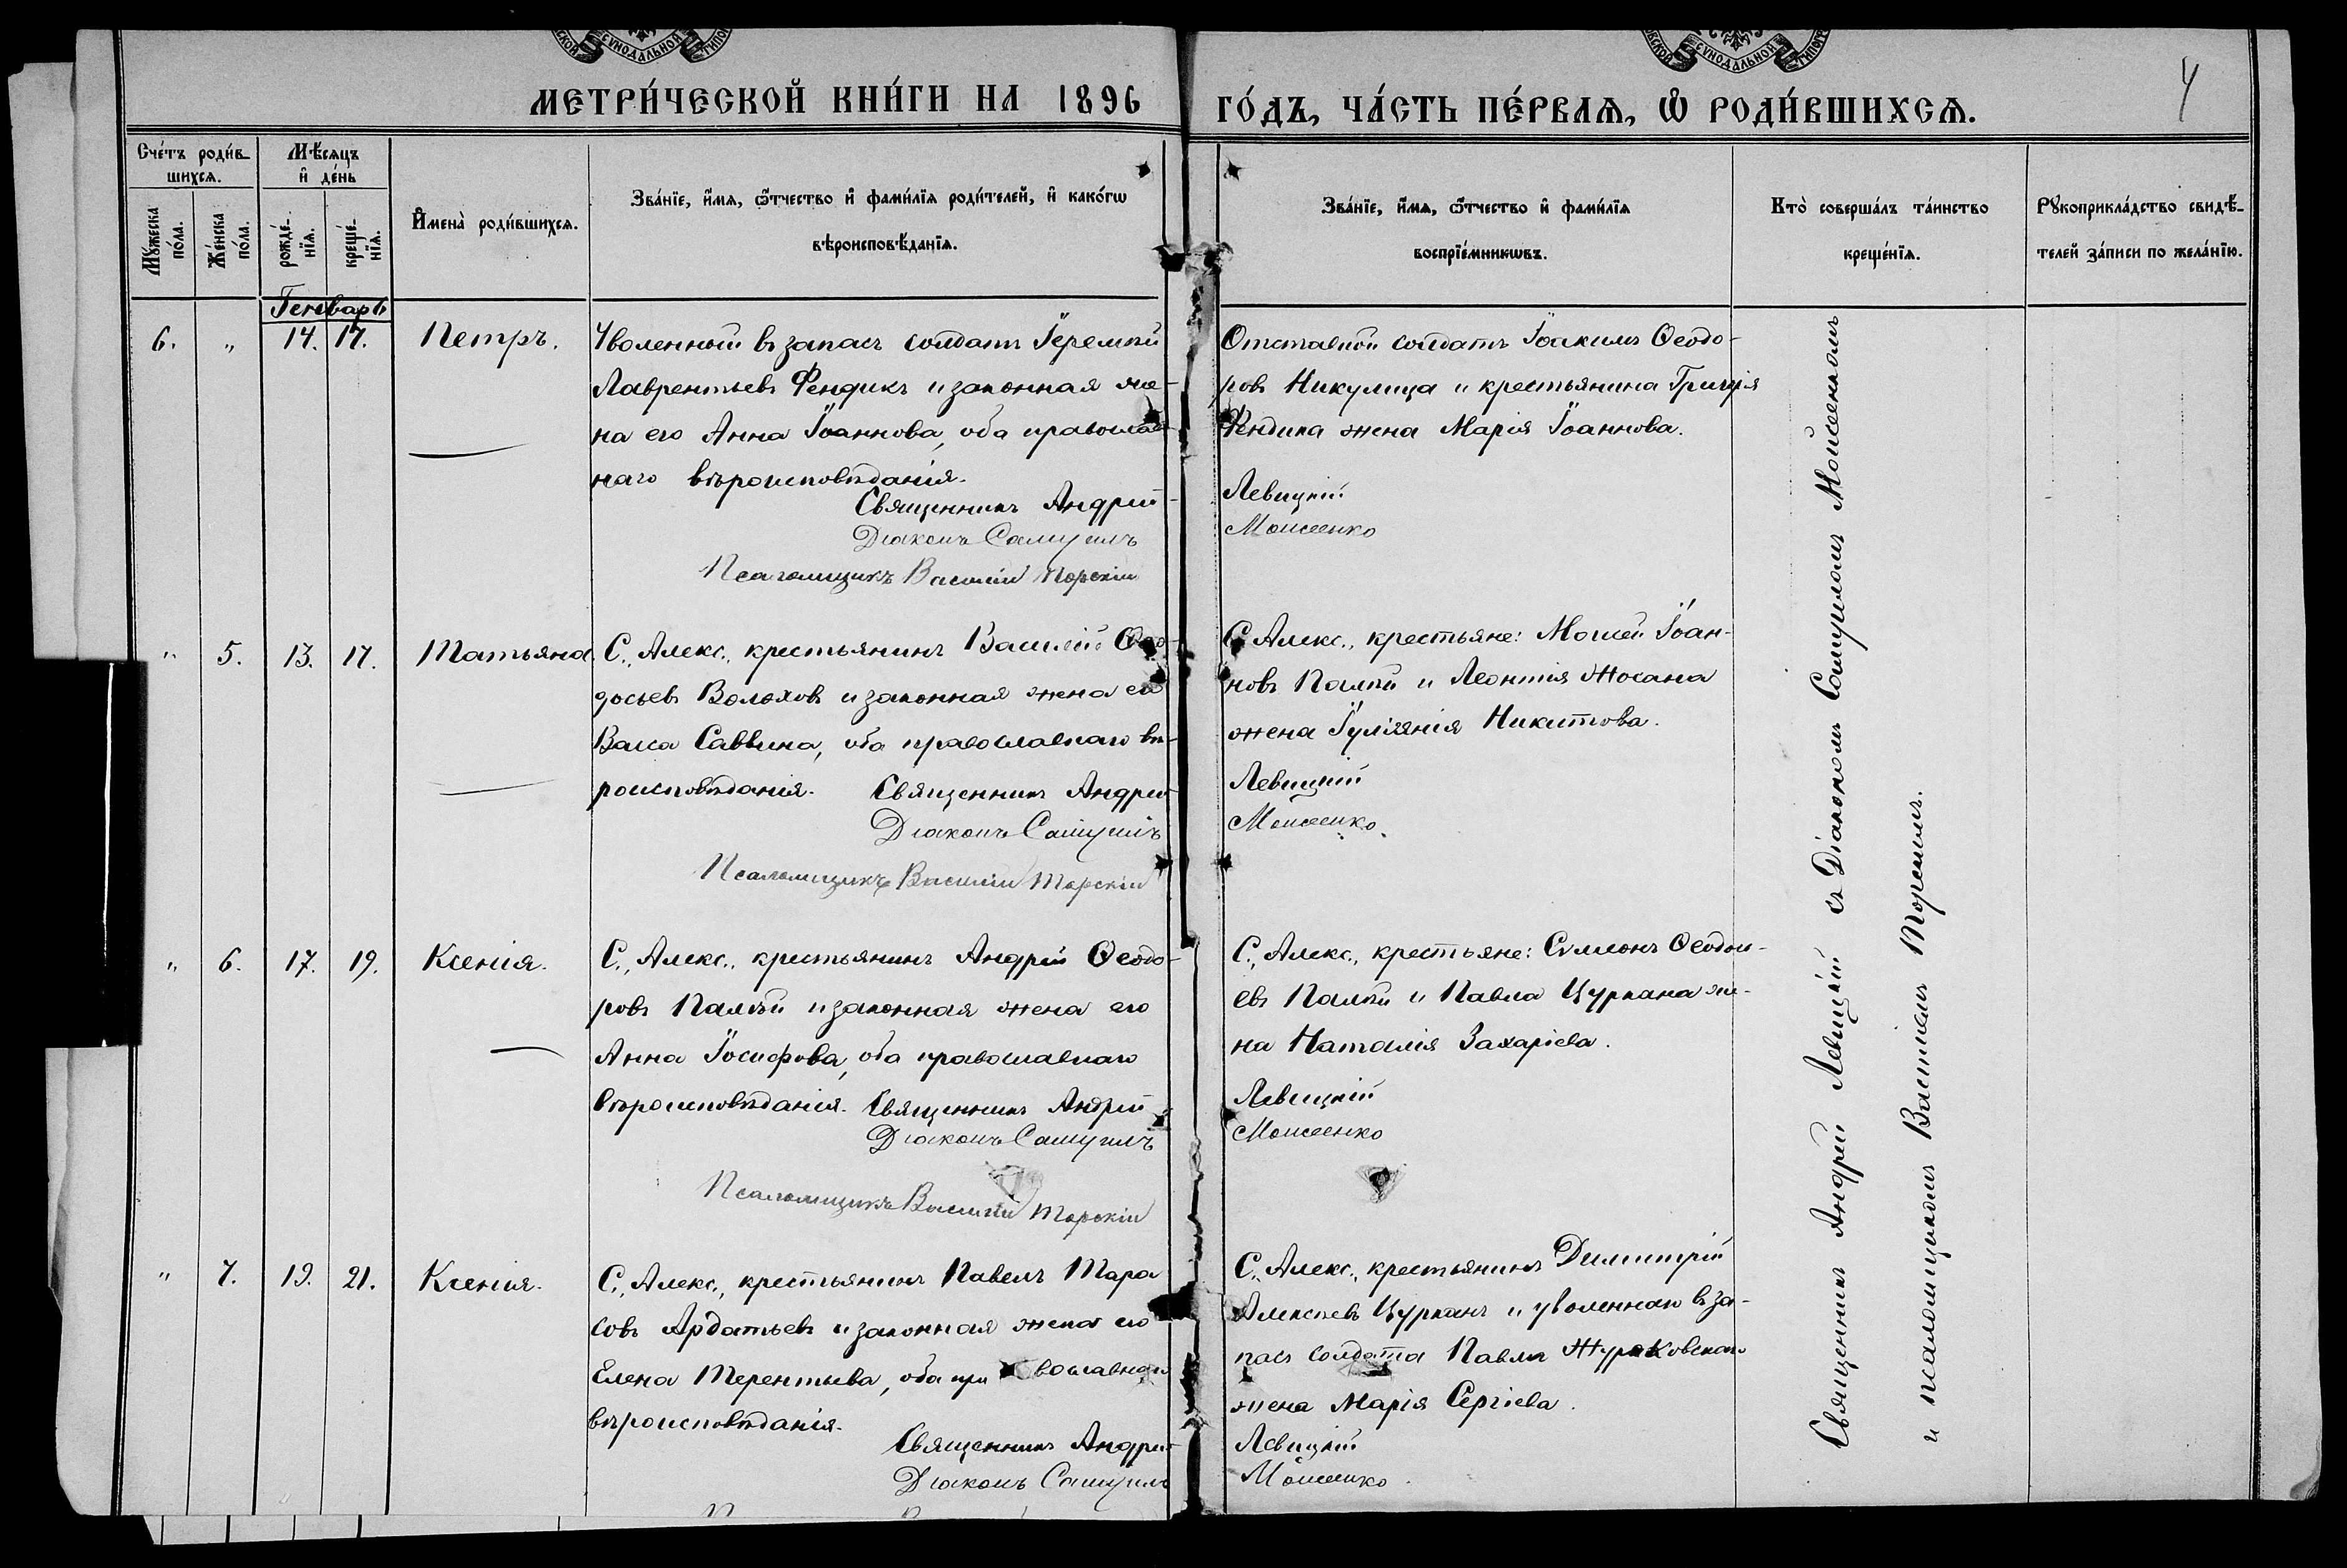 МЕТРИ́ЧЕСКОЙ КНИ́ГИ НА 1896 ГО́ДЪ, ЧА́СТЬ ПЕ́РВАѦ, Ѡ РОДИ́ВШИХСѦ.
4
Сче́тъ роди́в-
шихсѧ.
Мꙋ́жеска
по́ла.
Же́нска
по́ла.
Мѣ́сѧцъ
и҆ де́нь
рожде́-
нїѧ.
креще́-
нїѧ.
И҆мена̀ роди́вшихсѧ.
Зва́нїе, и҆́мѧ, ѻ҆́тчество и҆ фами́лїѧ роди́телей, и҆ како́гѡ
вѣроисповѣ́данїѧ.
Зва́нїе, и҆́мѧ, ѻ҆́тчество и҆ фами́лїѧ
воспрїе́мникѡвъ.
Кто̀ соверша́лъ та́инство
креще́нїѧ.
Рꙋкоприкла́дство свидѣ́-
телей за́писи по жела́нїю.
Генварь
6. " 14. 17. Петръ.
Уволенной въ запасъ солдатъ Іеремій
Лаврентьевъ Фендикъ и законная же-
на его Анна Іоаннова, оба православ-
наго вѣроисповѣданія.
Священникъ Андрей
Діаконъ Самуилъ
Псаломщикъ Василій Торскій
Отставной солдатъ Іоакимъ Ѳеодо-
ровъ Никулица и крестьянина Григорія
Фендика жена Марія Іоаннова.
Левицкій
Моисеенко
" 5. 13. 17. Татьяна.
С., Алекс., крестьянинъ Василій Ѳео-
досьевъ Волоховъ и законная жена его
Васса Саввина, оба православнаго вѣ-
роисповѣданія. Священникъ Андрей
Діаконъ Самуилъ
Псаломщикъ Василій Торскій
С. Алекс., крестьяне: Моисей Іоан-
новъ Палій и Леонтія Жосана
жена Іуліянія Никитова.
Левицкій
Моисеенко
" 6. 17. 19. Ксенія.
С., Алекс., крестьянинъ Андрей Ѳеодо-
ровъ Палій и законная жена его
Анна Іосифова, оба православнаго
вѣроисповѣданія. Священникъ Андрей
Діаконъ Самуилъ
Псаломщикъ Василій Торскій
С., Алекс., крестьяне: Сѵмеонъ Ѳеодось-
евъ Палій и Павла Цуркана же-
на Наталія Захаріева.
Левицкій
Моисеенко
" 7. 19. 21. Ксенія.
С., Алекс., крестьянинъ Павелъ Тара
совъ Ардатьевъ и законная жена его
Елена Терентьева, оба православнаго
вѣроисповѣданія.
Священникъ Андрей
Діаконъ Самуилъ
С., Алекс., крестьянинъ Димитрій
Алексѣевъ Цурканъ и уволеннаго въ за-
пасъ солдата Павла Жураковскаго
жена Марія Сергіева.
Левицкій
Моисеенко
Священникъ Андрей Левицкій съ Діакономъ Самуиломъ Моисеенкомъ
и псаломщикомъ Василіемъ Торскимъ.